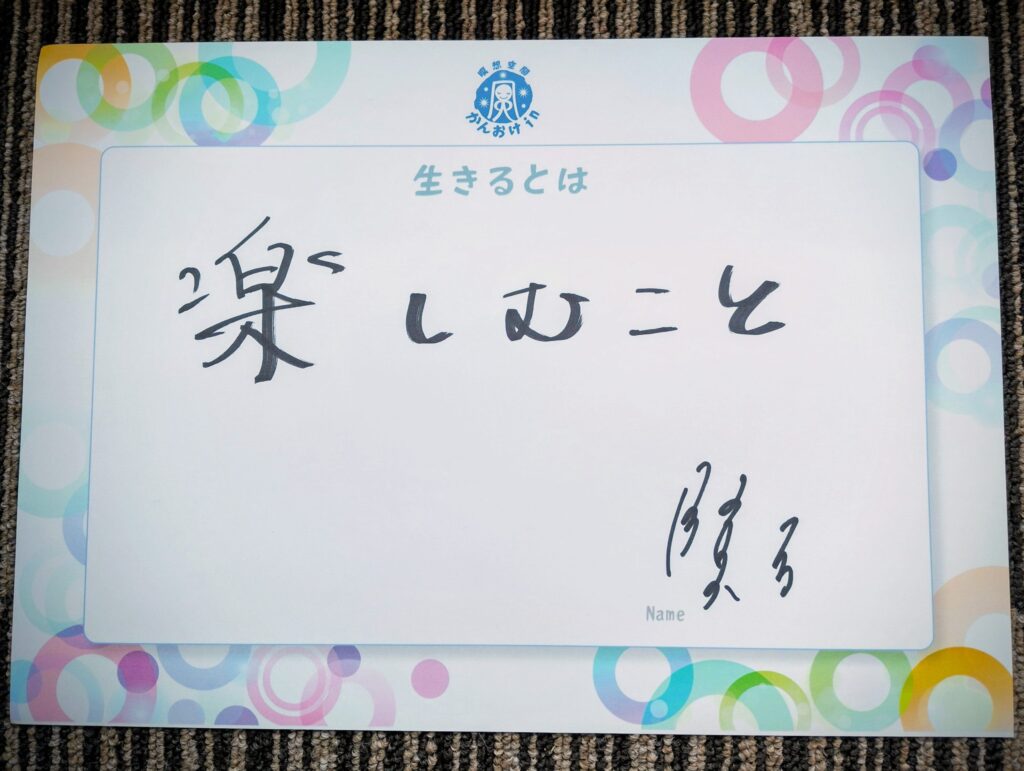 瞑想空間
かんおけin
生きるとは
楽しむこと
Name